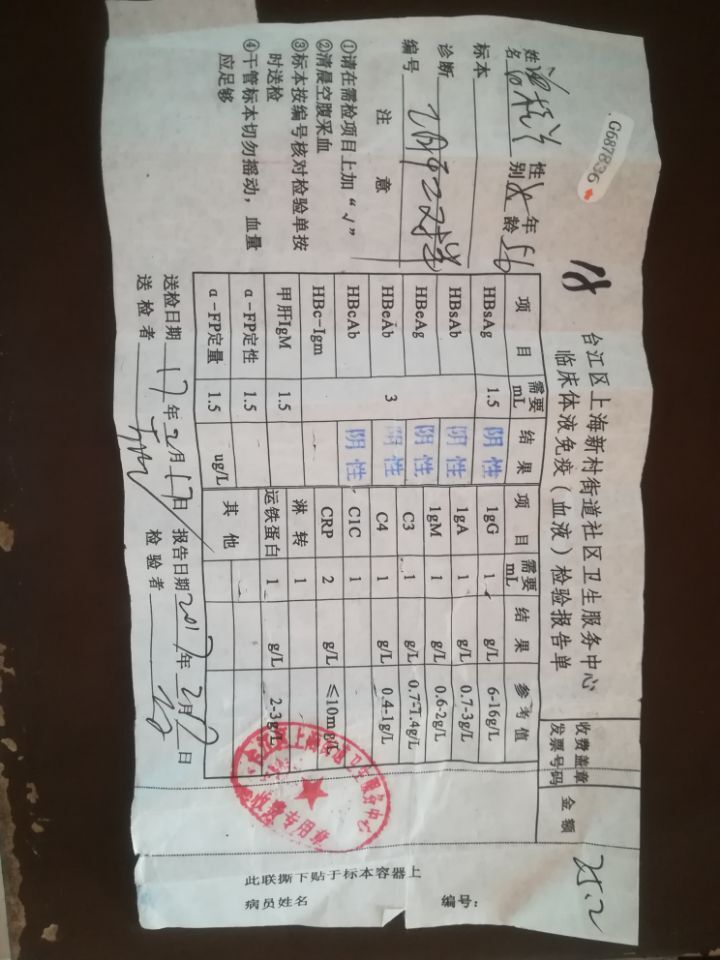 G687836
18
台江区上海新村街道社区卫生服务中心
临床体液免疫（血液）检验报告单
收费盖章
发票号码
金额
25.2
姓名
性别
年龄 56
标本
诊断
编号
注 意
①请在需检项目上加“√”
②清晨空腹采血
③标本按编号核对检验单按
时送检
④干管标本切勿摇动，血量
应足够
项 目 需要mL 结 果 项 目 需要mL 结 果 参考值
HBsAg 1.5 阴性 1gG 1 g/L 6-16g/L
HBsAb 阴性 1gA 1 g/L 0.7-3g/L
HBeAg 阴性 1gM 1 g/L 0.6-2g/L
HBeAb 3 阴性 C3 1 g/L 0.7-1.4g/L
HBcAb 阴性 C4 1 g/L 0.4-1g/L
HBc-Igm C1C 1
甲肝IgM 1.5 CRP 2 g/L ≤10mg/L
α-FP定性 1.5 淋 转 1
α-FP定量 1.5 ug/L 运铁蛋白 1 g/L 2-3g/L
其 他
送检日期 17年2月17日 报告日期 2017年2月17日
送检者
检验者
收费专用章
此联撕下贴于标本容器上
病员姓名
编号：